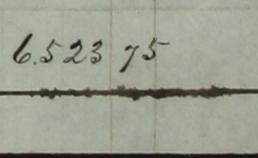 6.523 75